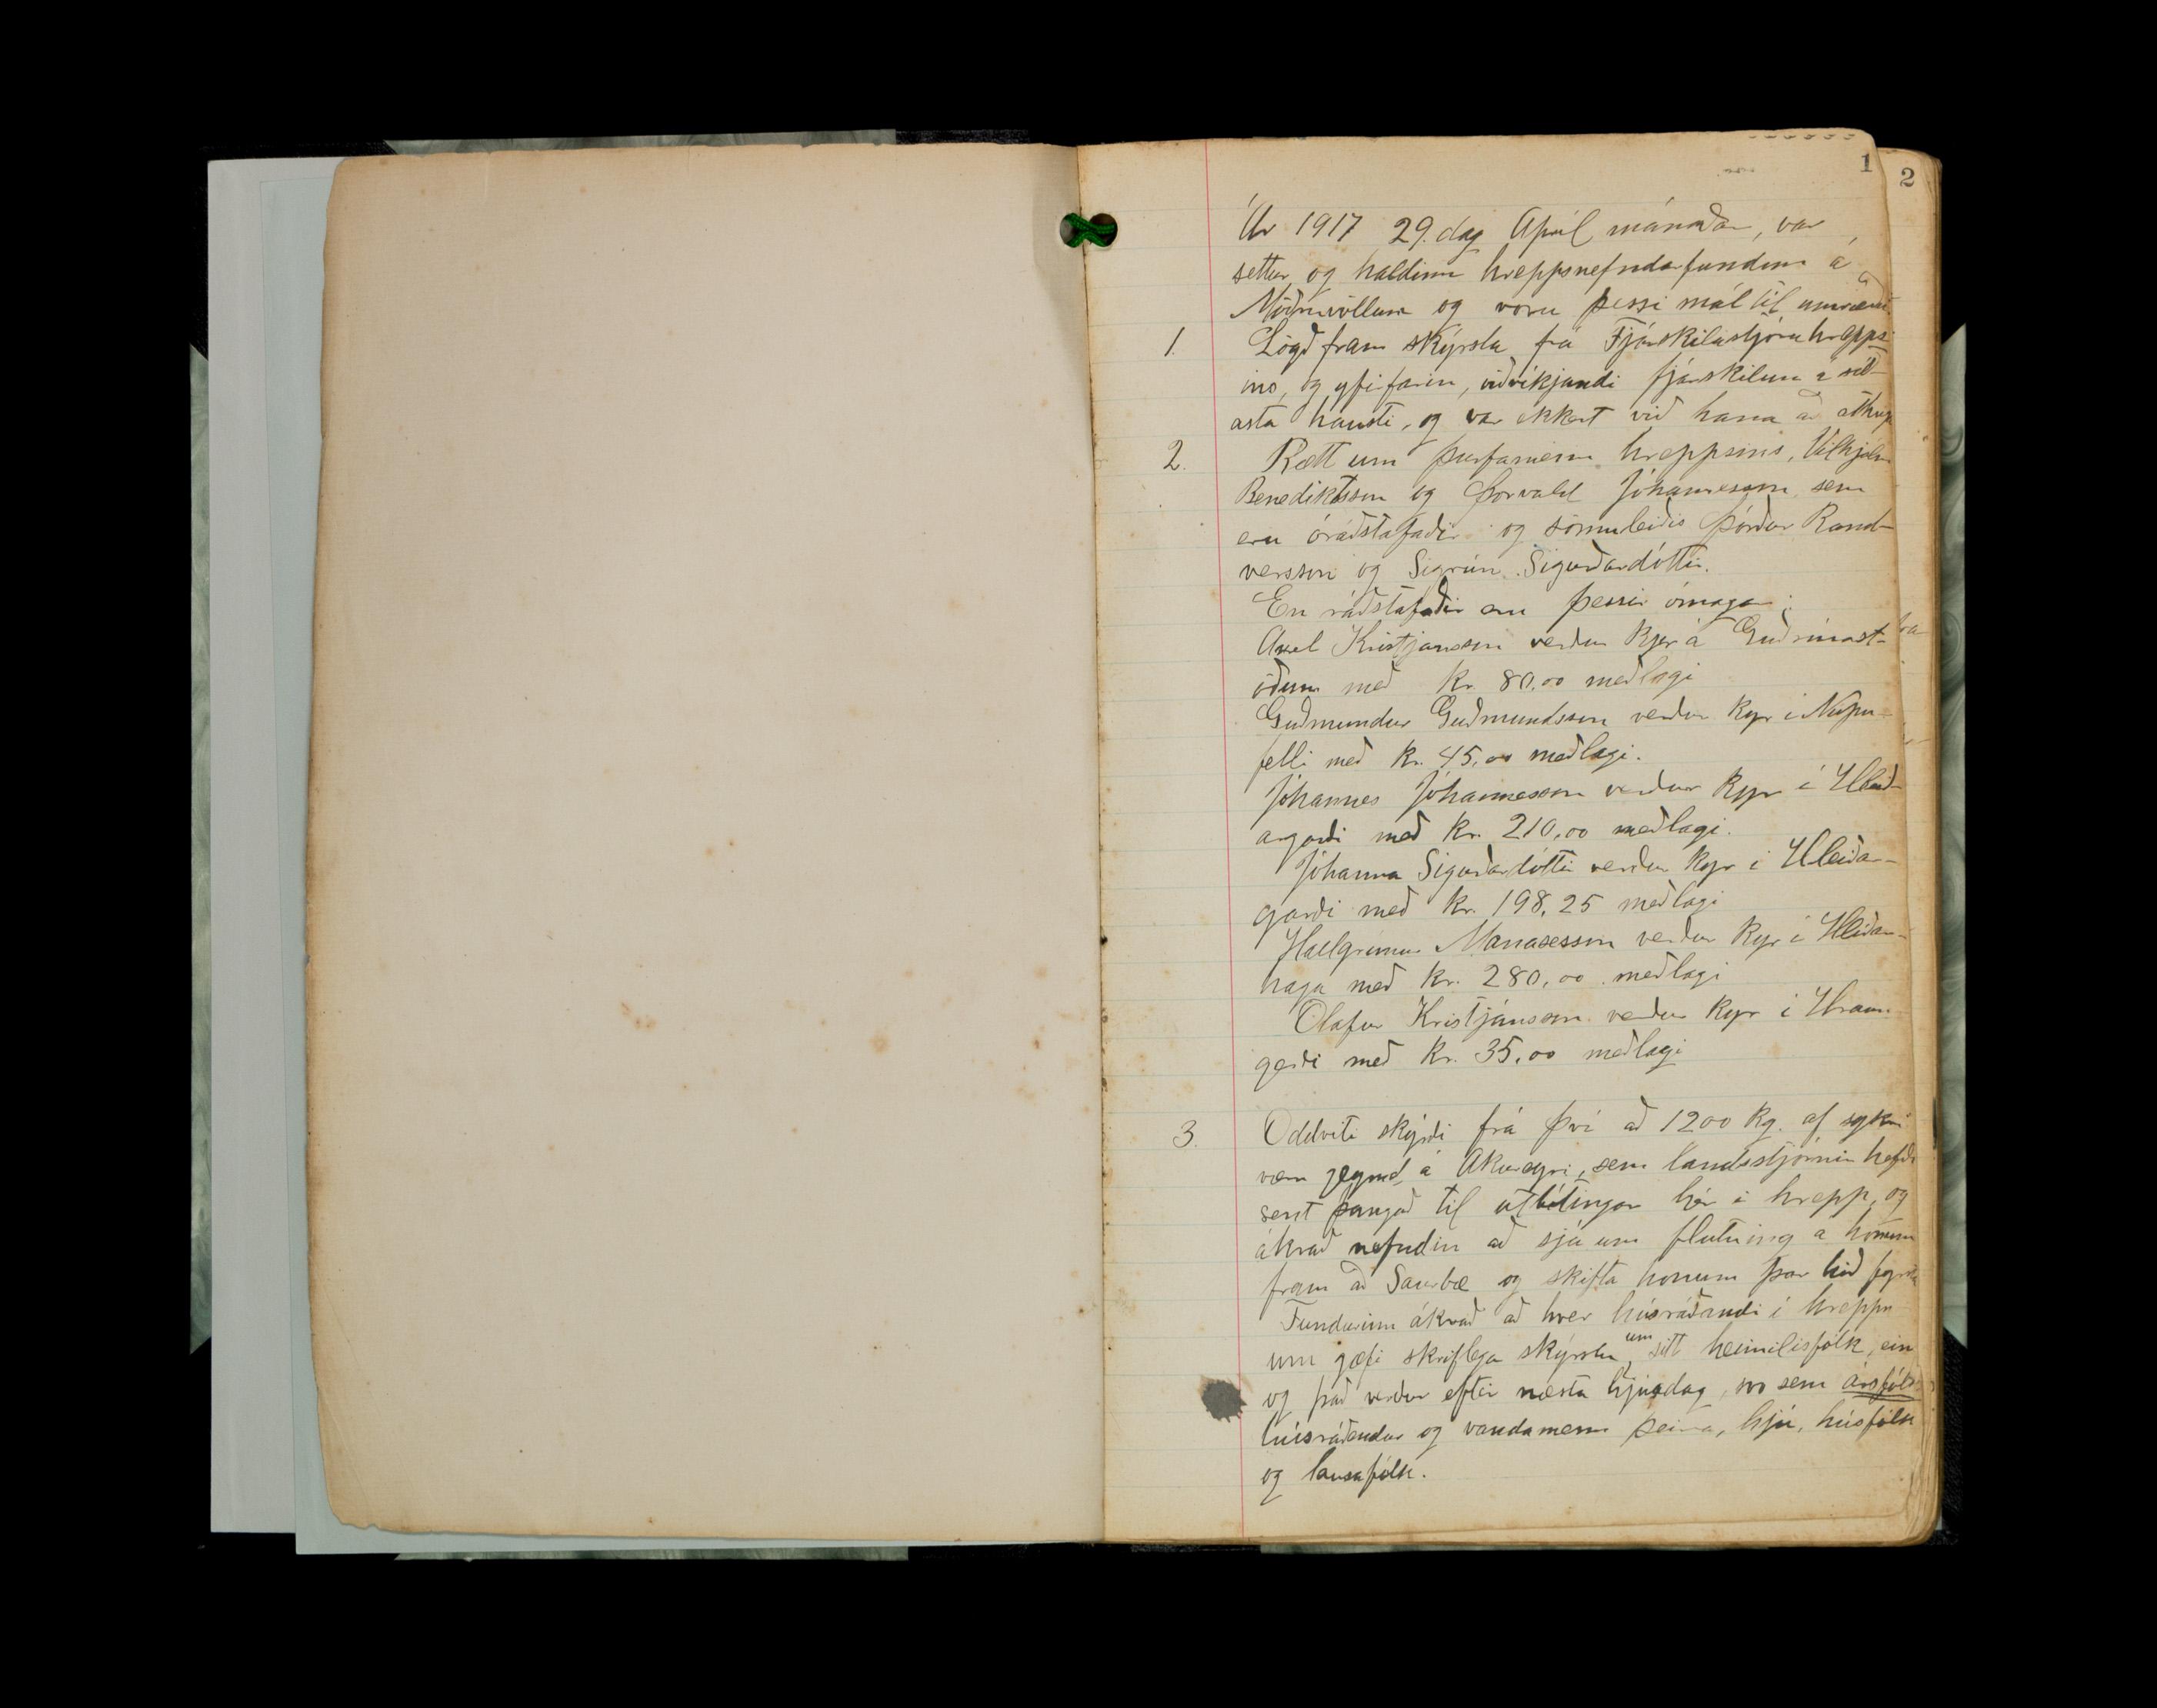 1
2
Ár 1917 29. dag Apríl mánaðar, var
settur og haldinn hreppsnefndarfundur á
Möðruvöllum og voru þessi mál til umræðu.
1. Lögð fram skýrsla frá Fjárskilastjóra hrepps-
ins, og yfirfarin, viðvíkjandi fjárskilum á síð-
asta hausti, og var ekkert við hana að athuga
2. Rætt um þurfamenn hreppsins, Vilhjálm
Benediktsson og Þorvald Jóhannesson sem
eru óráðstafaðir og sömuleiðis Þórður Rand-
versson og Sigrún Sigurðardóttir.
En ráðstafaðir eru þessir ómagar:
Axel Kristjánsson verður kyr á Guðrúnarst-
öðum með kr. 80,00 meðlagi
Guðmundur Guðmundsson verður kyr í Núpu-
felli með kr. 45,00 meðlagi.
Jóhannes Jóhannesson verður kyr í Hleið-
argarði með kr. 210,00 meðlagi.
Jóhanna Sigurðardóttir verður kyr í Hleiðar-
garði með kr. 198,25 meðlagi
Hallgrímur Manasesson verður kyr í
haga með kr. 280,00 meðlagi
Ólafur Kristjánsson verður kyr í Hraun
gerði með kr. 35,00 meðlagi
3. Oddviti skýrði frá því að 1200 kg. af sykri
væru geymd á Akureyri, sem landsstjórnin hefði
sent þangað til útbýtingar hér í hrepp, og
ákvað nefndin að sjá um flutning á honum
fram að Saurbæ og skifta honum þar hið fyrsta
Fundurinn ákvað að hver húsráðandi í hreppn
um gæfi skriflega skýrslu um sitt heimilisfólk, ein
og það verður eftir næsta hjúadag, svo sem ársfólk
húsráðendur og vandamenn þeirra, hjú, húsfólk
og lausafólk.